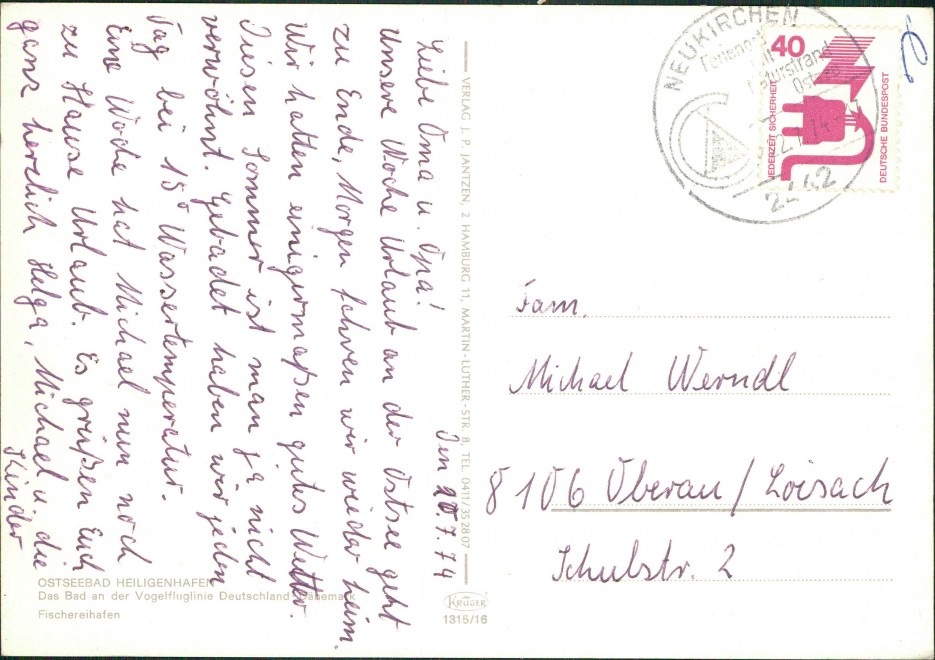 Den 20.7.74
Liebe Oma u. Opa!
Unsere Woche Urlaub an der Ostsee geht
zu Ende, Morgen fahren wir wieder heim.
Wir hatten einigermaßen gutes Wetter.
Diesen Sommer ist man ja nicht
verwöhnt. Gebadet haben wir jeden
Tag bei 15° Wassertemperatur.
Eine Woche hat Michael nun noch
zu Hause Urlaub. Es grüßen Euch
ganz herzlich Helga, Michael u. die
Kinder
VERLAG J. P. JANTZEN, 2 HAMBURG 11, MARTIN-LUTHER-STR. 8, TEL. 0411/352807
OSTSEEBAD HEILIGENHAFEN
Das Bad an der Vogelfluglinie Deutschland-Dänemark
Fischereihafen
KRÜGER
1315/16
NEUKIRCHEN
Ferienort
mit
Naturstrand
Ostsee
2442
40
JEDERZEIT SICHERHEIT
DEUTSCHE BUNDESPOST
Fam.
Michael Werndl
8106 Oberau/Loisach
Schulstr. 2